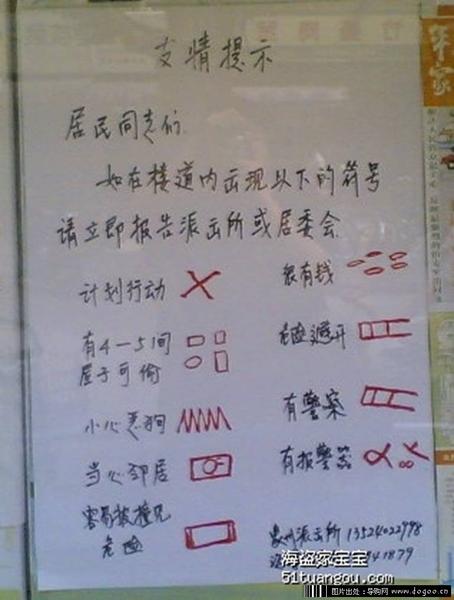 友情提示
居民同志们
如在楼道内出现以下的符号
请立即报告派出所或居委会
计划行动
很有钱
有4-5间
屋子可偷
危险避开
小心恶狗
有警察
当心邻居
有报警器
容易被撞见
危险
派出所 13524022998
41879
海盗家宝宝
51tuangou.com
图片出处：导购网 www.dogoo.cn
年家